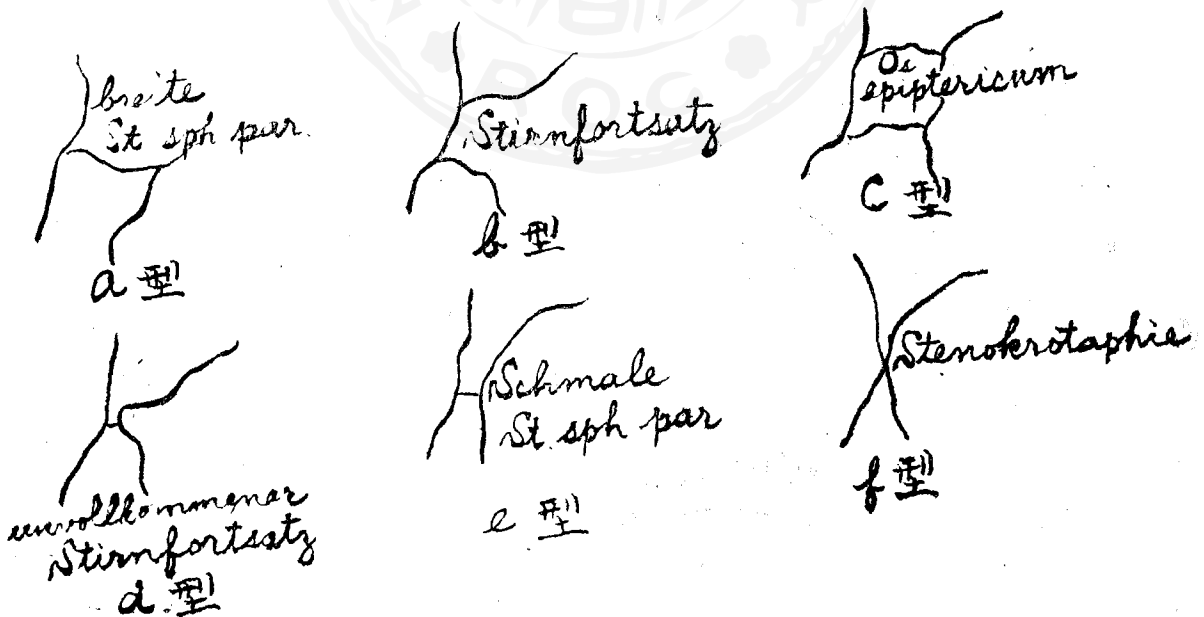 breite
St sph par.
a 型
Stirnfortsatz
b 型
Os
epiptericum
C 型
unvollkommener
Stirnfortsatz
d. 型
Schmale
St. sph par
e 型
Stenokrotaphie
f 型
ROC